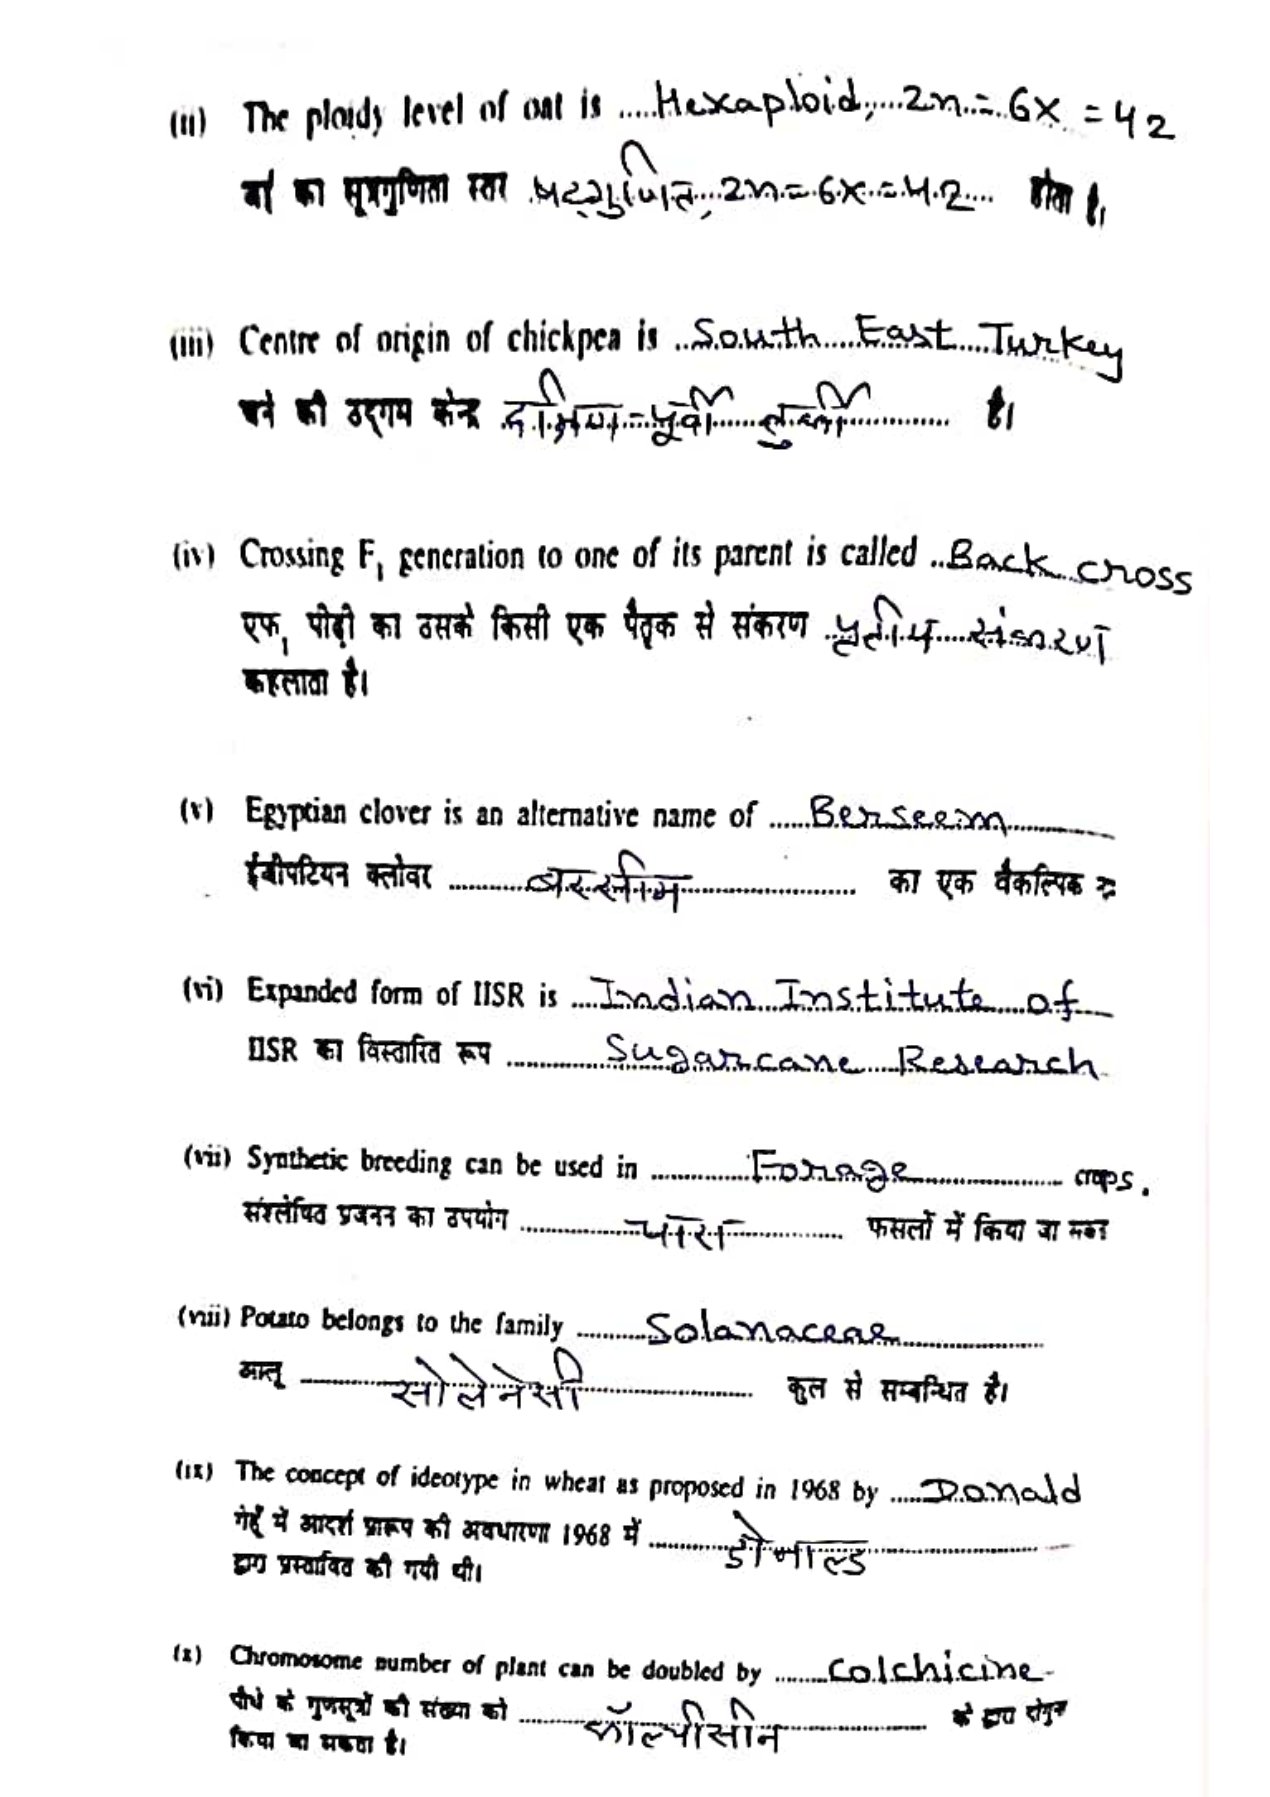 (ii) The ploidy level of oat is ....Hexaploid,...2n = 6x = 42
जई का सूत्रगुणिता स्तर षट्गुणित, 2n = 6x = 42 होता है।
(iii) Centre of origin of chickpea is ..South East Turkey
चने की उद्गम केन्द्र दक्षिण-पूर्वी तुर्की है।
(iv) Crossing F₁ generation to one of its parent is called ..Back cross
एफ₁ पीढ़ी का उसके किसी एक पैतृक से संकरण संकरण
कहलाता है।
(v) Egyptian clover is an alternative name of ......Berseem............
ईजीपटियन क्लोवर ............बरसीम............ का एक वैकल्पिक
(vi) Expanded form of IISR is ....Indian Institute of
IISR का विस्तारित रूप ............Sugarcane Research
(vii) Synthetic breeding can be used in ............Forage............ crops.
संश्लेषित प्रजनन का उपयोग ............चारा............ फसलों में किया जा सकता
(viii) Potato belongs to the family ............Solanaceae............
आलू ............सोलेनेसी............ कुल से सम्बन्धित है।
(ix) The concept of ideotype in wheat as proposed in 1968 by ......Donald
गेहूँ में आदर्श प्रारूप की अवधारणा 1968 में ............डोनाल्ड............
द्वारा प्रस्तावित की गयी थी।
(x) Chromosome number of plant can be doubled by .........Colchicine
पौधे के गुणसूत्रों की संख्या को ............कॉल्चीसीन............ के द्वारा दोगुना
किया जा सकता है।